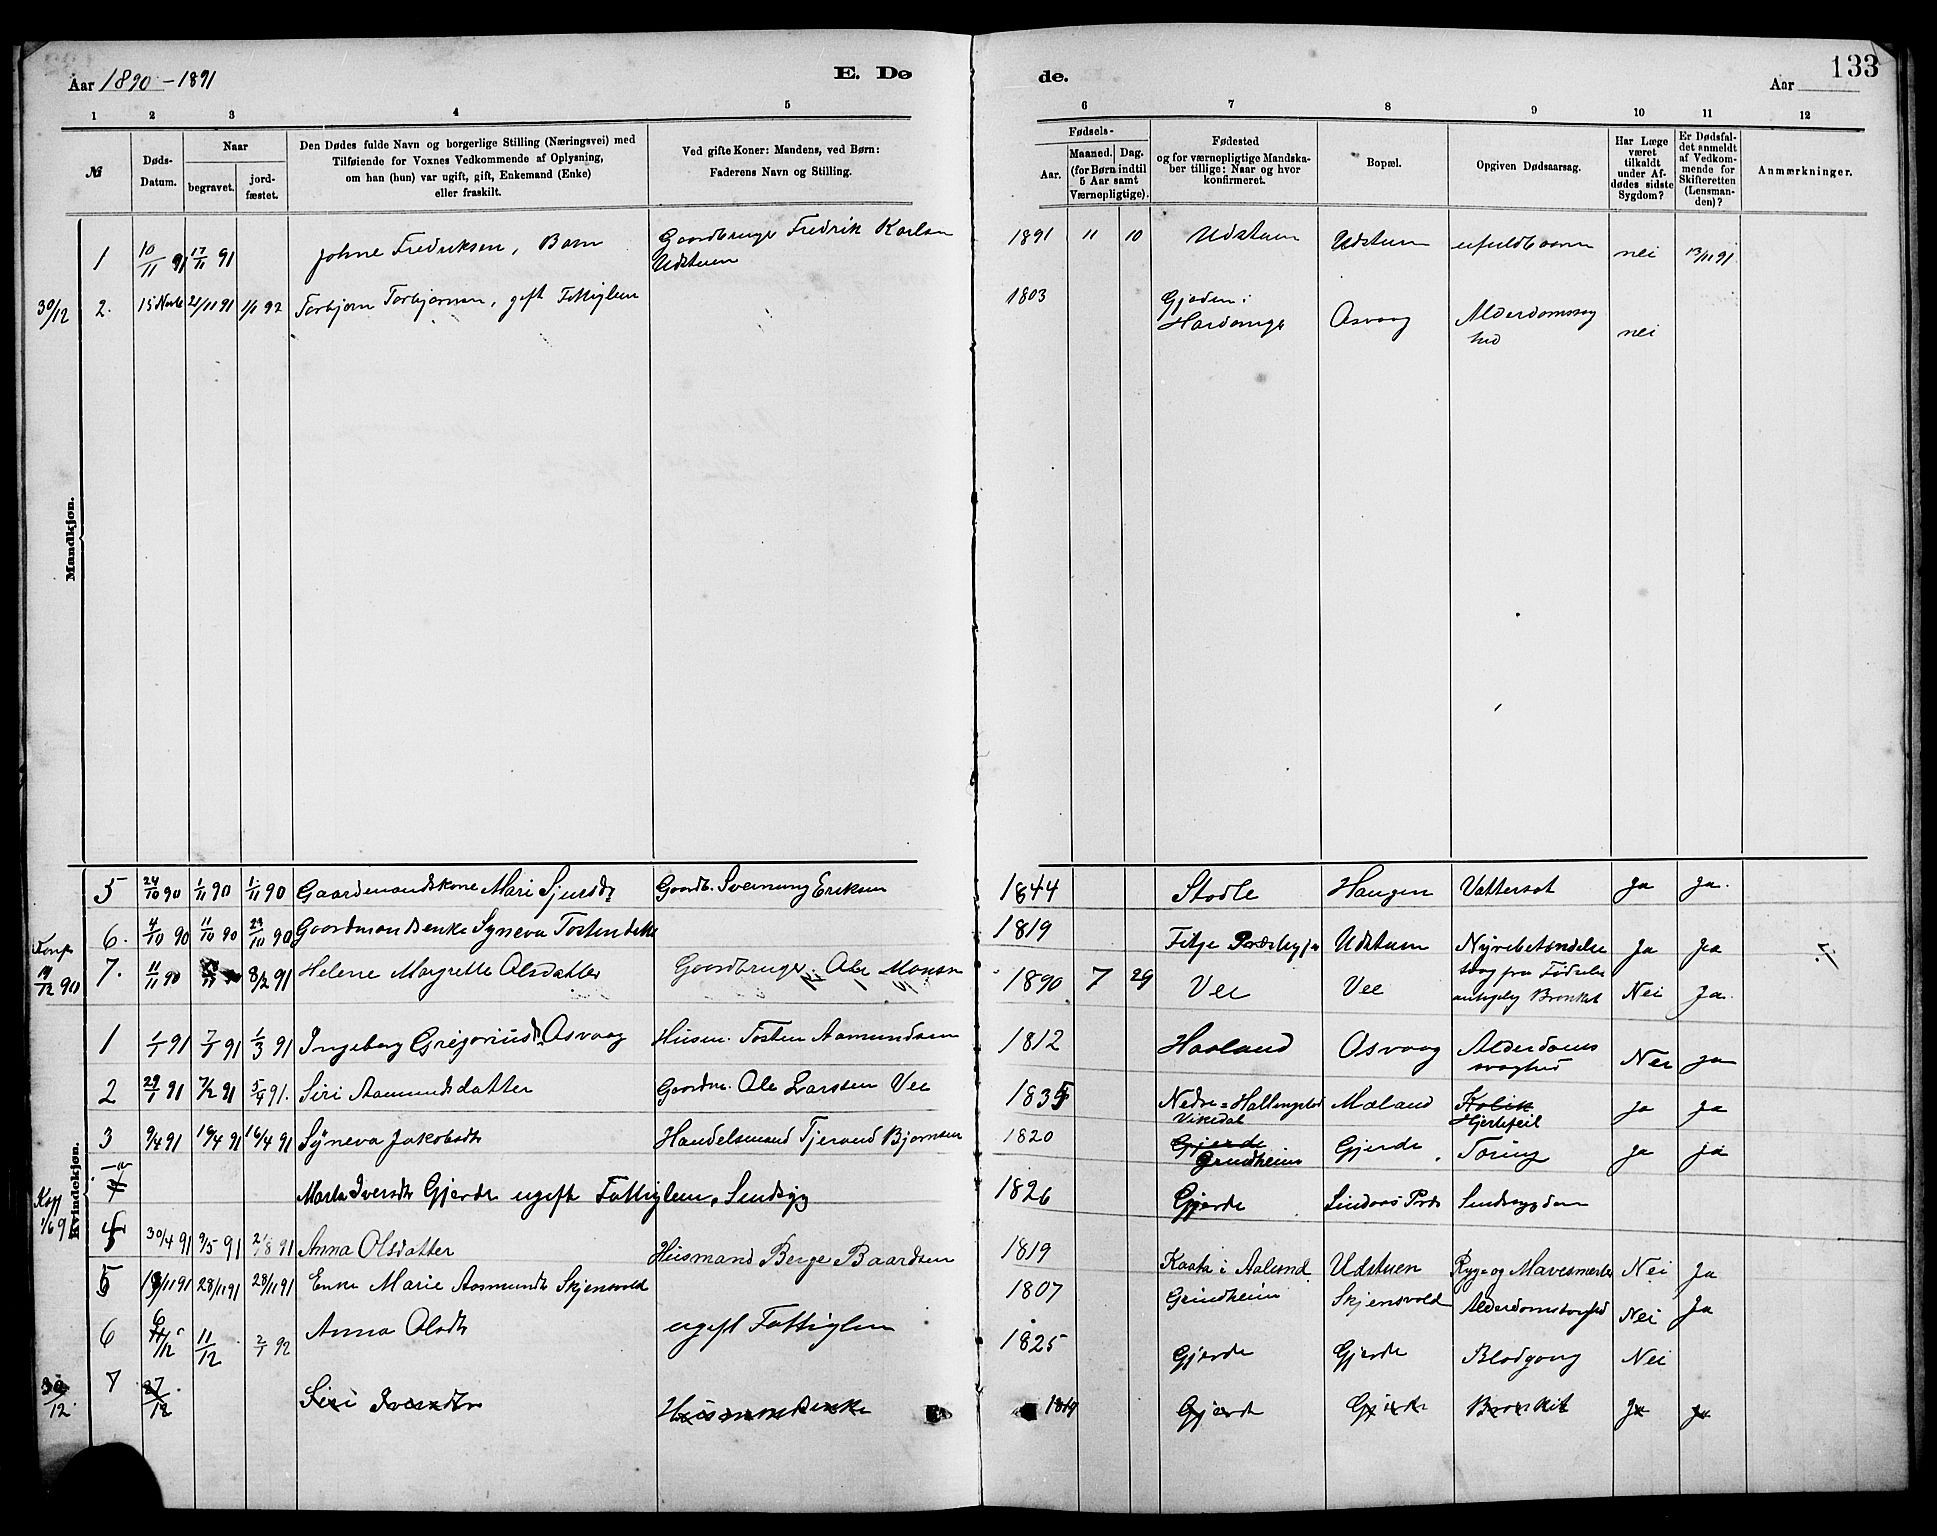 Aar 1890 - 1891
E. Dø
de.
Aar
133
1 2 3 4 5
6 7 8 9 10 11 12
№
Døds-
Datum.
Naar
begravet.
jord-
fæstet.
Den Dødes fulde Navn og borgerlige Stilling (Næringsvei) med
Tilføiende for Voxnes Vedkommende af Oplysning,
om han (hun) var ugift, gift, Enkemand (Enke)
eller fraskilt.
Ved gifte Koner: Mandens, ved Børn:
Faderens Navn og Stilling.
Fødsels-
Aar.
Maaned. Dag.
(for Børn indtil
5 Aar samt
Værnepligtige).
Fødested
og for værnepligtige Mandska-
ber tillige: Naar og hvor
konfirmeret.
Bopæl.
Opgiven Dødsaarsag.
Har Læge
været
tilkaldt
under Af-
dødes sidste
Sygdom?
Er Dødsfal-
det anmeldt
af Vedkom-
mende for
Skifteretten
(Lensman-
den)?
Anmærkninger.
Mandkjøn.
1 10/11 91 17/11 91 Johne Fredriksen, Barn Gaardbruger Fredrik Karlsen
Udstuen
1891 11 10 Udstuen Udstuen ufuldbaaren nei 13/11 91
30/12 2. 15 Novb 21/11 91 1/1 92 Torbjørn Torbjørnsen, gift Fattiglem
1803 Gjøden i
Hardanger Osvaag Alderdomssvag
hed nei
Kvindekjøn.
5 24/10 90 1/11 90 1/11 90 Gaardmandskone Mari Sjursdt Gaardb. Sveinung Eriksen
1844 Stødle Haugen Vattersot Ja Ja.
6. 4/10 90 11/10 90 23/10 90 Gaardmandsenke Syneva Tostensdtt
1819 Fitje Præstegj Udstuen Nyrebetændelse Ja Ja
19/12 90 7. 11/11 90 8/2 91 Helene Margrette Olsdatter Gaardbruger Ole Monsen
1890 7 29 Vee Vee svag fra Fødselen
antagelig Bronkit Nei Ja.
1 1/1 91 7/1 91 1/3 91 Ingeborg Gregoriusdt Osvaag Husm. Tosten Aamundsen
1812 Haaland Osvaag Alderdoms
svaghed Nei ja
2 29/1 91 7/2 91 5/4 91. Siri Aamundsdatter Gaardm. Ole Larsen Vee
1835 Nedre-Hallingstad
Vikedal Mæland Kolik
Hjertefeil ja Ja
3 9/4 91 16/4 91 16/4 91 Syneva Jakobsdt Handelsmand Tjerand Bjørnsen
1820 Gjerde
Grindheim Gjerde Tæring ja ja
Marta Iversdt Gjerde ugift Fattiglem, Sindsyg
1826 Gjerde Lindaas Præs Sindssygdom
1/6 91 4 30/4 91 9/5 91 2/8 91 Anna Olsdatter Husmand Berge Baardsen
1819 Kaata i Aalund Udstuen Ryg og Mavesmerter Nei Ja
5 19/11 91 28/11 91 28/11 91 Enke Marie Aasmundsdt Skjensvold
1807 Grindheim Skjensvold Alderdomssvaghed Nei Ja
6 6/12 11/12 2/1 92 Anna Olsdt ugift Fattiglem
1825 Gjerde Gjerde Blodgang Nei
30/12. 7 27/12 Siri Iversdtr Husmandsenke
1819 Gjerde Gjerde Bronkit Ja Ja